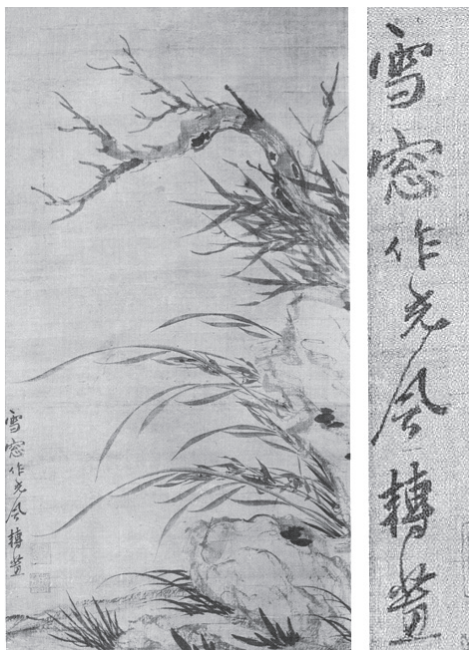 雪窓作光風轉蕙
雪窓作光風轉蕙